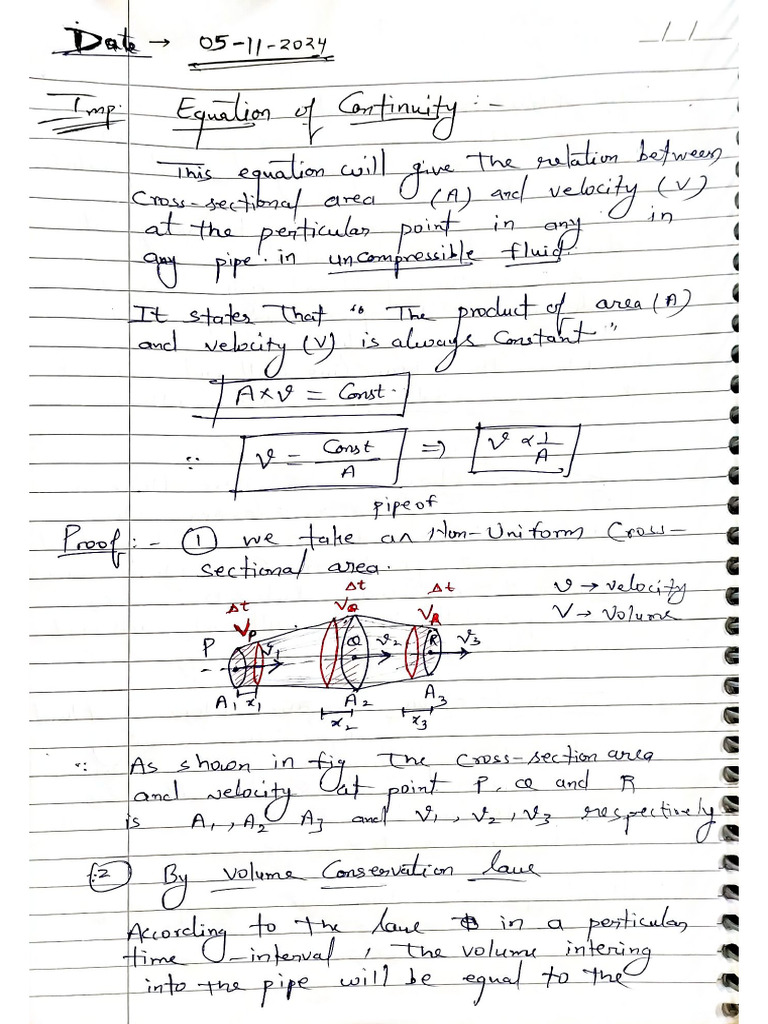 Date → 05-11-2024
_/_/__
Imp. Equation of Continuity :-
This equation will give the relation between
Cross-sectional area (A) and velocity (V)
at the perticular point in any in
any pipe. in uncompressible fluid.
It states that " The product of area (A)
and velocity (V) is always Constant "
A×v = Const.
∵ v = Const/A ⇒ v ∝ 1/A
pipe of
Proof :- ① we take an Non-Uniform Cross-
sectional area.
Δt Δt Δt
v → velocity
V → Volume
VP VQ VR
P v1 Q v2 R v3
A1 x1 A2 x2 A3 x3
∵ As shown in fig The cross-section area
and velocity at point P, Q and R
is A1, A2 A3 and v1, v2, v3 respectively
:2 By volume Conservation lawe
According to the lawe in a perticular
time -interval, the volume intering
into the pipe will be equal to the